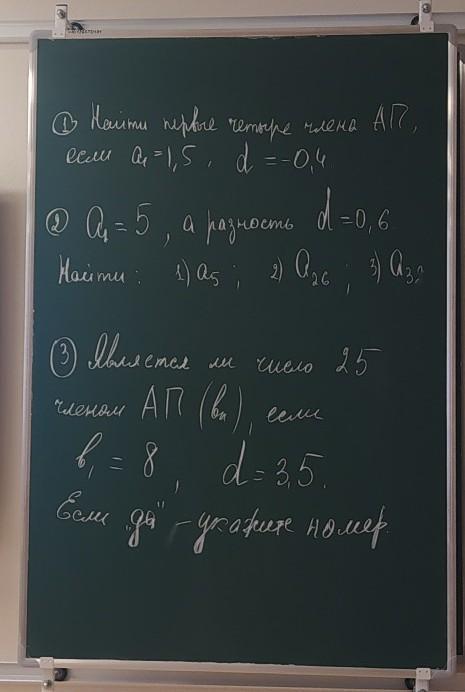 ① Найти первые четыре члена АП,
если a₁=1,5, d=-0,4
② a₁=5, а разность d=0,6
Найти: 1) a₅; 2) a₂₆; 3) a₃₂
③ Является ли число 25
членом АП (bₙ), если
b₁=8, d=3,5.
Если „да" - укажите номер.